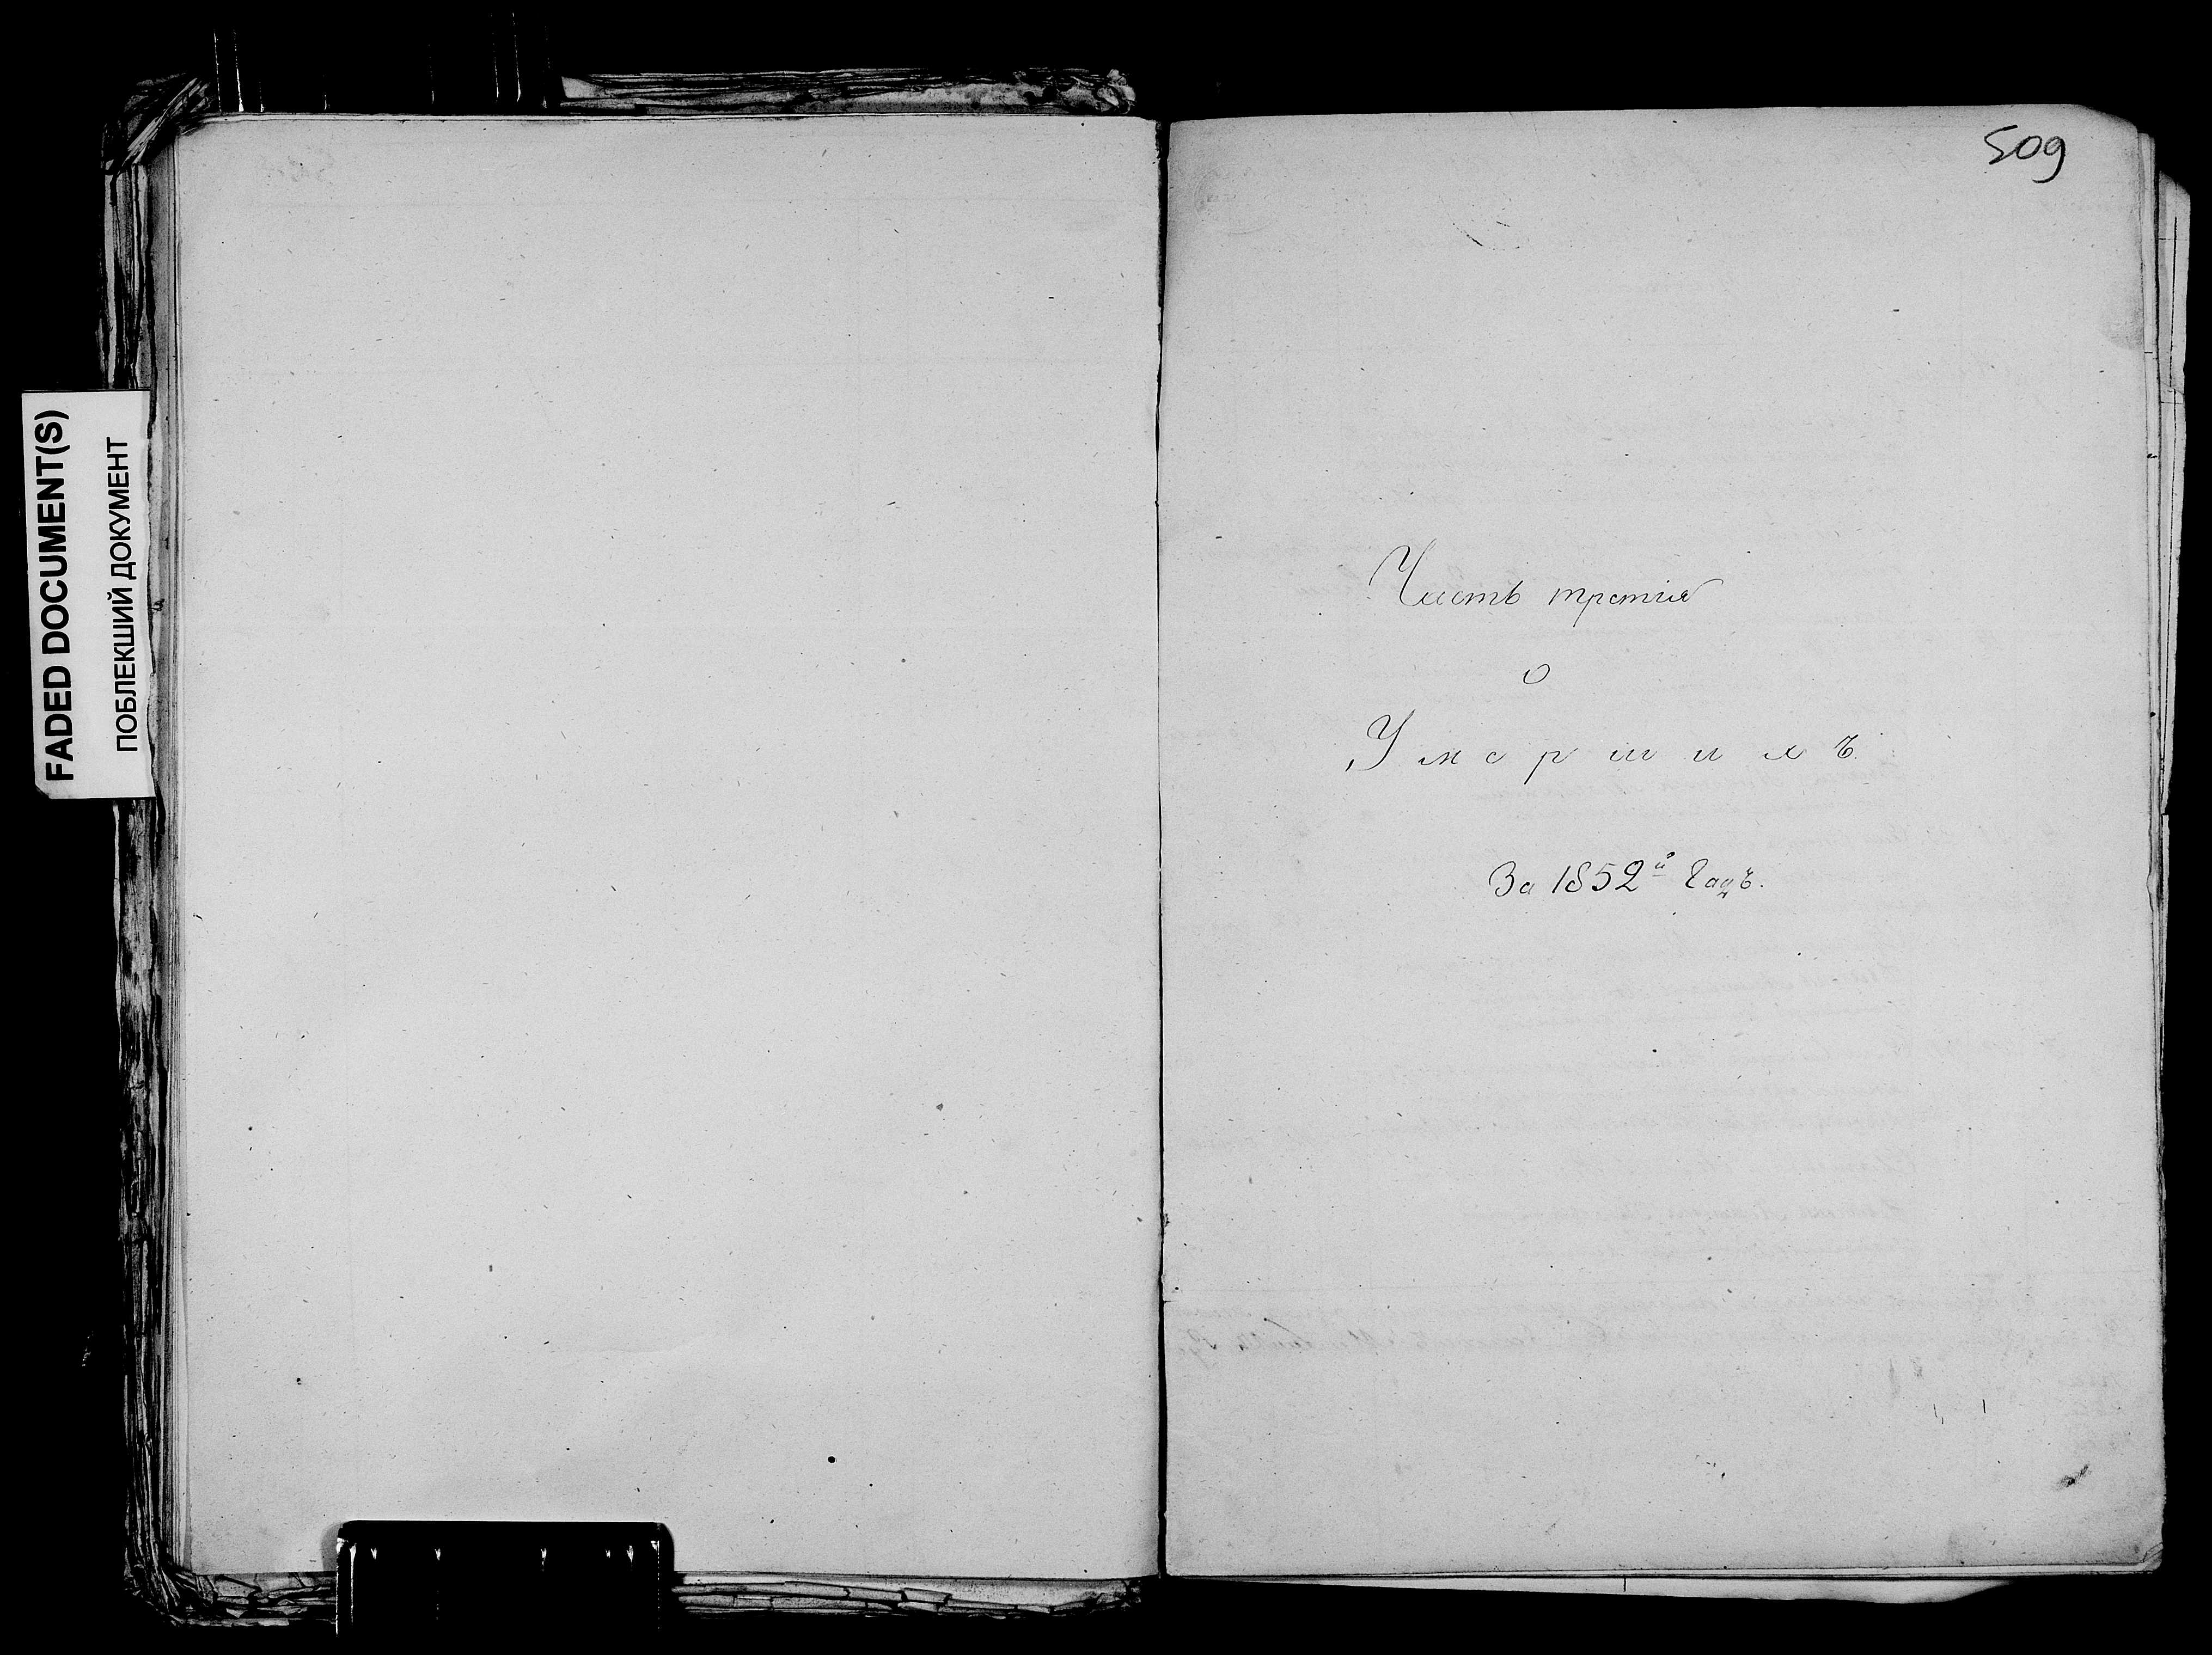 FADED DOCUMENT(S)
ПОБЛЕКШИЙ ДОКУМЕНТ
509
Часть третія
о
Умершихъ
За 1852й Годъ.